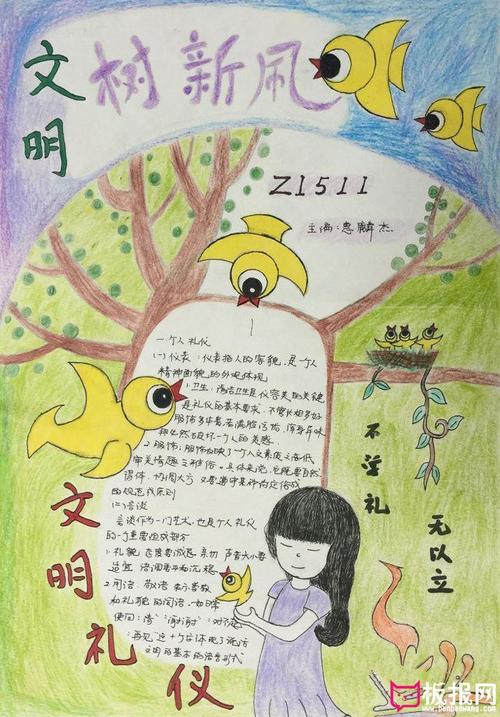 文明
树新风
Z1511
主编:惠麟杰
一个人礼仪
(一)仪表:仪表指人的容貌,是一个人
精神面貌的外观体现
1.卫生:清洁卫生是仪容美的关键
是礼仪的基本要求。不管长相多好
服饰多华贵若满脸污垢,浑身异味
那必然破坏一个人的美感。
2.服饰:服饰反映了一个人文素质之高低
审美情趣之雅俗。具体来说,它既要自然
得体,协调大方,又要遵守某种约定俗成
的规范或原则
(二)言谈
言谈作为一门艺术,也是个人礼仪
的一个重要组成部分
1.礼貌:态度要诚恳、亲切;声音大小要
适宜,语调要平和沉稳。
2.用语:敬语,表示尊敬
和礼貌的词语。如日常
使用"请""谢谢""对不起"
"再见"这十个字体现了说话
文明的基本的语言形式
不学礼
无以立
文明礼仪
板报网
www.banbaowang.com